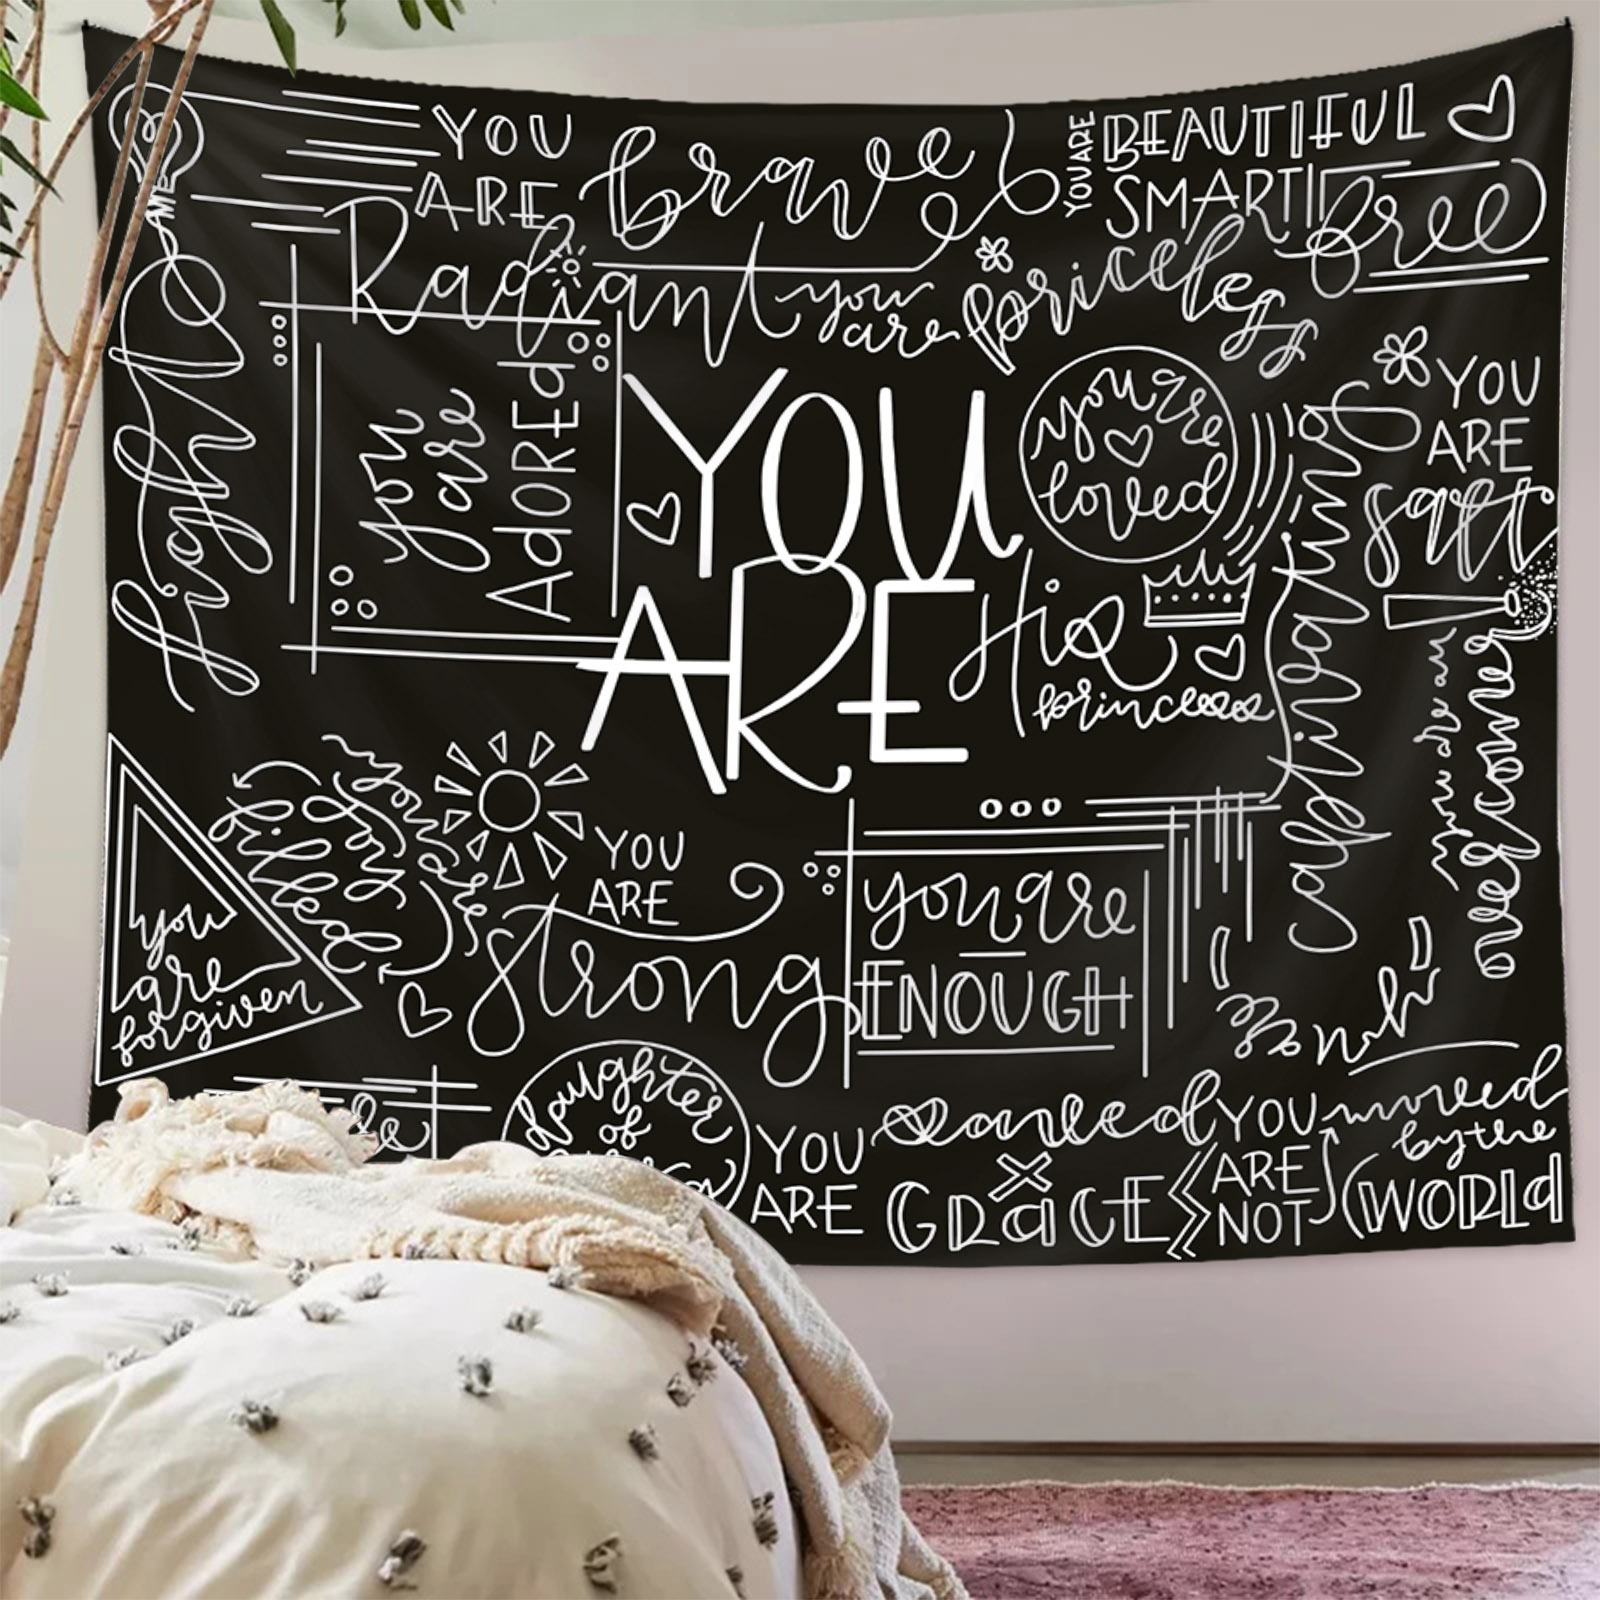 YOU
ARE
brave
YOU ARE
BEAUTIFUL
SMART
free
Radiant
you
are
priceless
light
you
are
AdOREd
YOU
ARE
you are
loved
His
princess
captivating
YOU
ARE
salt
you are an
overcomer
you
are
forgiven
you are
YOU
ARE
strong
you are
ENOUGH
daughter
of
YOU
ARE
saved
x
GRaCE
YOU
ARE
NOT
moved
by the
WORLd